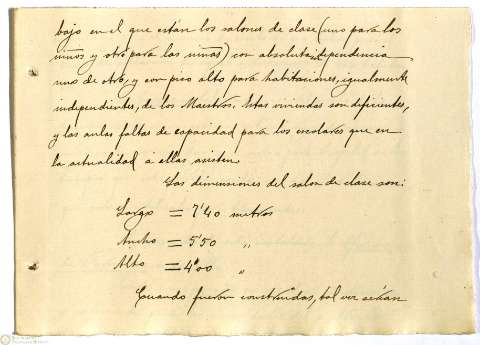 bajo en el que están los salones de clase (uno para los
niños y otro para las niñas) con absoluta independencia
uno de otro, y con piso alto para habitaciones, igualmente
independientes, de los Maestros. Estas viviendas son deficientes,
y las aulas faltas de capacidad para los escolares que en
la actualidad á ellas asisten.
Las dimensiones del salon de clase son:
Largo = 7'40 metros
Ancho = 5'50 "
Alto = 4'00 "
Cuando fueron construidas, tal vez serían